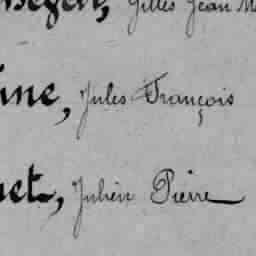 Gilles Jean
ine, Jules François
uet, Julien Pierre